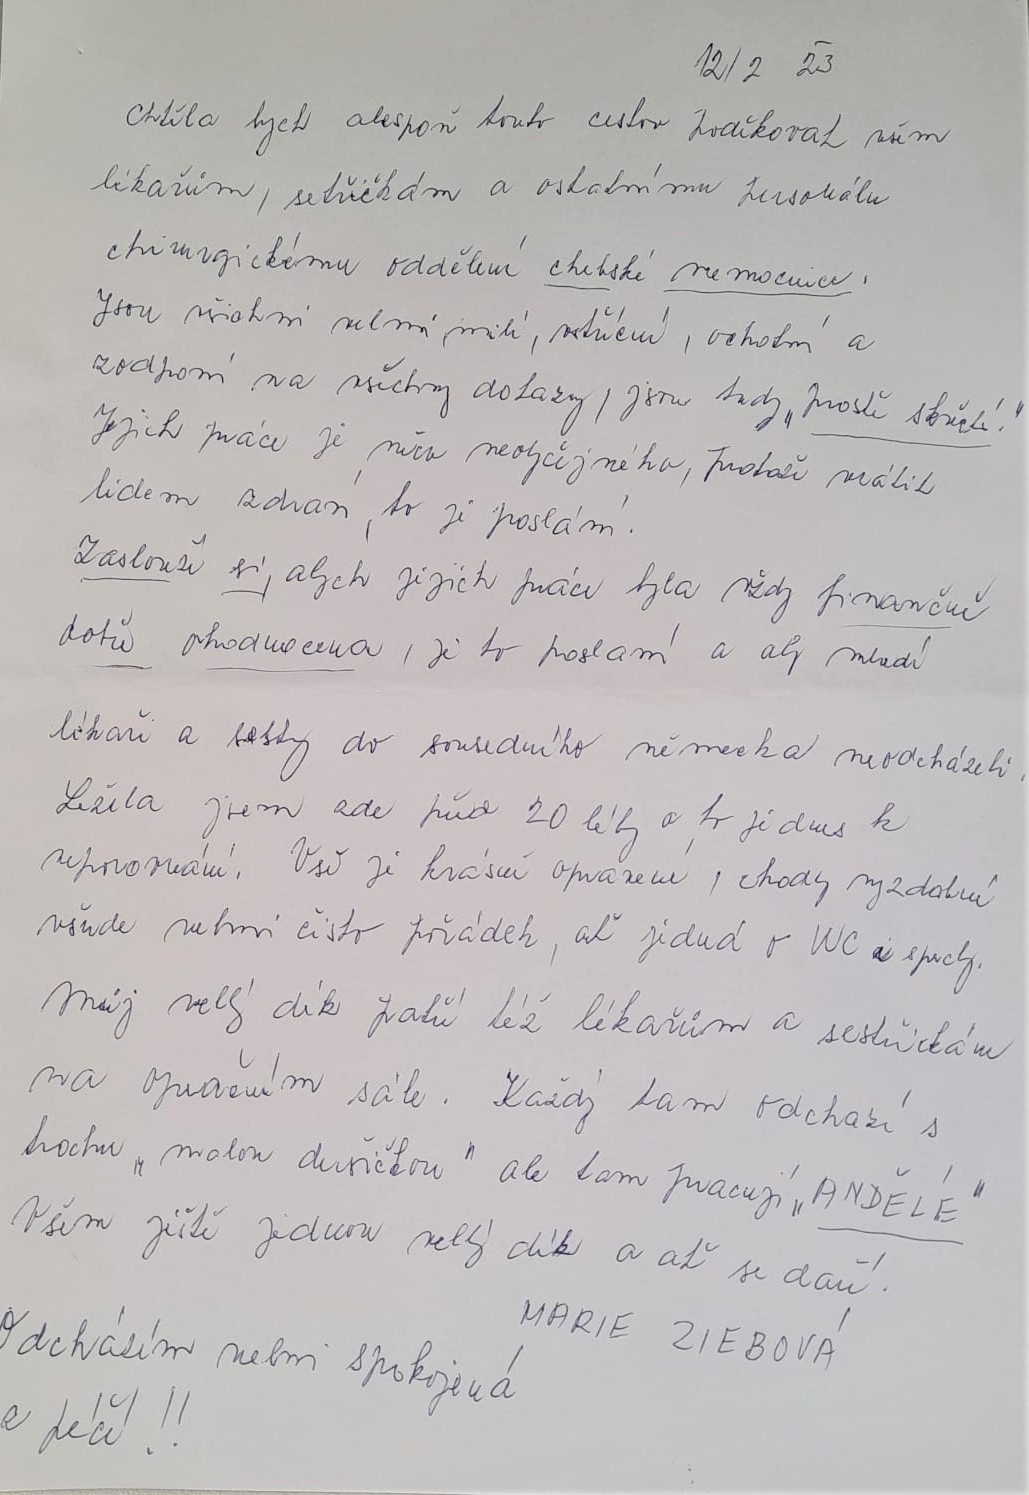 12/2 23
Chtěla bych alespoň touto cestou poděkovat všem
lékařům, setřičkám a ostatnímu personálu
chirurgickému oddělení chebské nemocnice.
Jsou všichni velmi milí, vstřícní, ochotní a
zodpoví na všechny dotazy, jsou tedy „prostě skvělí."
Jejich práce je něco neobyčejného, protože vrátit
lidem zdraví, to je poslání.
Zaslouží si, abych jejich práce byla vždy finančně
dotč ohodnocena, je to poslaní a aby mladí
lékaři a sestry do sousedního německa neodcházeli.
Ležela jsem zde před 20 léty a to je dnes k
neporovnání. Vše je krásně opravené, chody vyzdobné
všude velmi čisto pořádek, ať jedná o WC a sprchy.
Můj velký dík patří též lékařům a sestřičkám
na operačním sále. Každý tam odchází s
trochu „malou dušičkou" ale tam pracují „ANDĚLÉ"
Všem ještě jednou velký dík a ať se daří.
MARIE ZIEBOVÁ
Odcházím velmi spokojená
a péčí!!